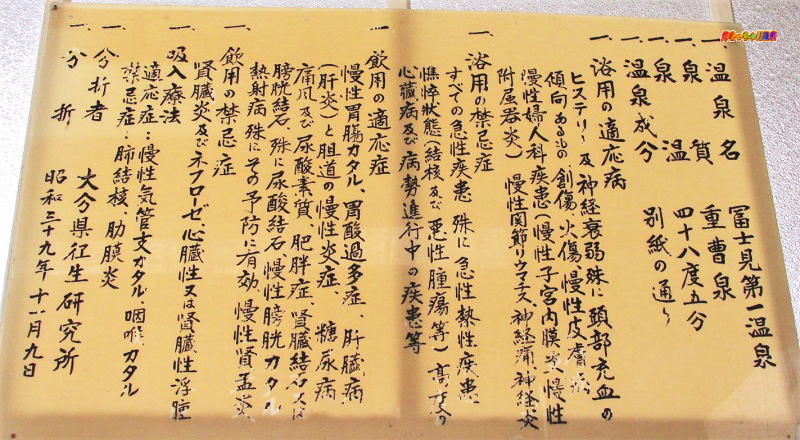 一、温泉名 冨士見第一温泉
一、泉質 重曹泉
一、泉温 四十八度五分
一、温泉成分 別紙の通り
一、浴用の適応病
ヒステリー及神経衰弱殊に頭部充血の
傾向あるもの創傷、火傷、慢性皮膚病
慢性婦人科疾患(慢性子宮内膜炎、慢性
附属器炎)慢性関節リウマチス、神経痛、神経炎
一、浴用の禁忌症
すべての急性疾患殊に急性熱性疾患
憔悴状態(結核及び悪性腫瘍等)高度の
心臓病及び病勢進行中の疾患等
一、飲用の適応症
慢性胃腸カタル、胃酸過多症、肝臓病
(肝炎)と胆道の慢性炎症、糖尿病
痛風及び尿酸素質、肥胖症、腎臓結石又は
膀胱結石、殊に尿酸結石、慢性膀胱カタル
熱射病殊にその予防に有効、慢性腎盂炎
一、飲用の禁忌症
腎臓炎及びネフローゼ、心臓性又は腎臓性浮腫
一、吸入療法
適応症:慢性気管支カタル、咽喉カタル
禁忌症:肺結核、肋膜炎
一、分析者 大分県衛生研究所
一、分析 昭和三十九年十一月九日